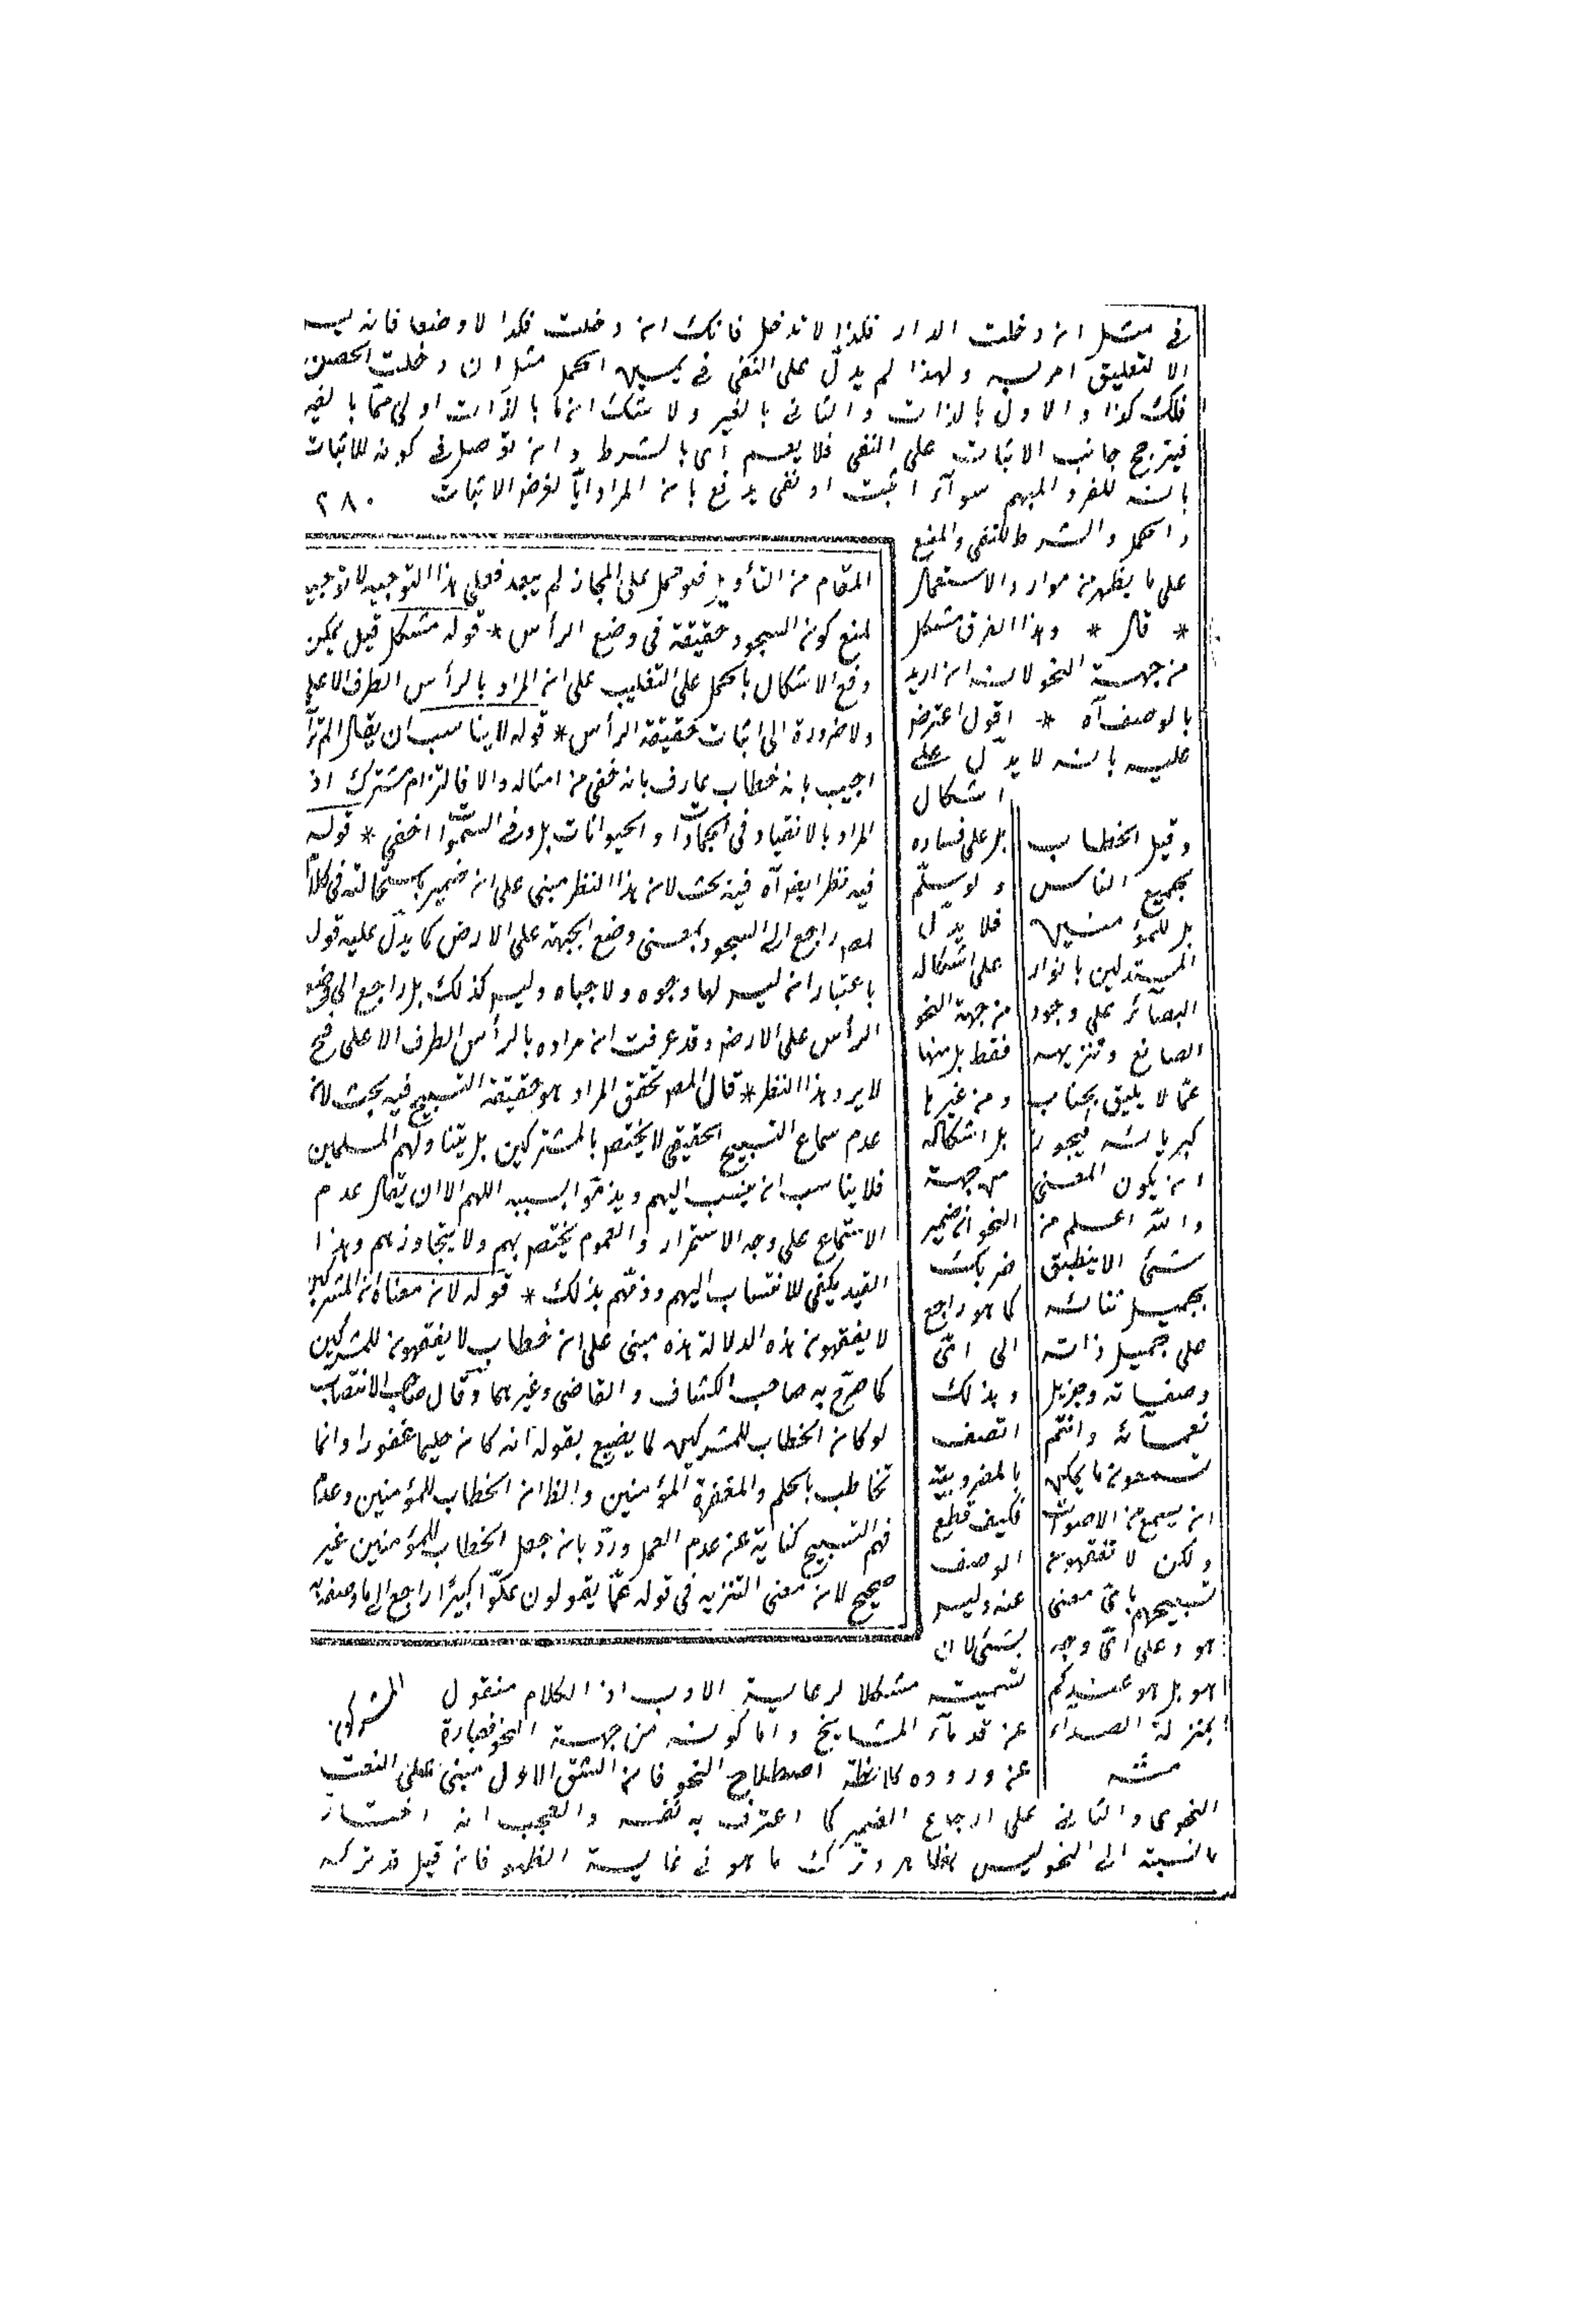 في مثل ان دخلت الدار فكذا لا تدخل فانك ان دخلت فكذا لا وضعا فانه ليس
الا لتعليق امر به ولهذا لم يدل على النفي في يمين الحمل مثل ان دخلت الحصن
فلك كذا والاول بالذات والثاني بالغير ولا شك ان ما بالذات اولى مما بالغير
فيترجح جانب الاثبات على النفي فلا يعم اى بالشرط وان توصل في كونه للاثبات
بانه للفرد المبهم سوآء اثبت او نفى يدفع بان المراد ايا لغرض الاثبات ٢٨٠
والحمل والشرط للنفي والمنع
على ما يظهر من موارد الاستعمال
* قال * وهذا الفرق مشكل
من جهة النحو لانه ان اريد
بالوصف آه * اقول اعترض
عليه بانه لا يدل على
اشكال
بل على فساده
ولو سلم
فلا يدل
على اشكاله
من جهة النحو
فقط بل منها
ومن غيرها
بل اشكاله
من جهة
النحو ان ضمير
ضربك
كما هو راجع
الى اىّ
وبذلك
اتصف
بالمضروبية
فكيف قطع
الوصف
عنه وليس
بشئ لان
تسميته مشكلا لرعاية الادب اذ الكلام منقول
عن قدمآء المشايخ واما كونه من جهة النحو فعبارة
عن وروده بملاحظة اصطلاح النحو فان الشق الاول مبنى على النعت
النحوى والثاني على ارجاع الضمير كما اعترف به نفسه والعجب انه اختار
ما نسبته الى النحو ليس بظاهر وترك ما هو في غاية الظهور فان قيل قد تركه
وقيل الخطاب
لجميع الناس
بل للمؤمنين
المستدلين بانوار
البصائر على وجود
الصانع وتنزيهه
عما لا يليق بجناب
كبريائه فيجوز
ان يكون المعنى
والله اعلم من
شئ الا ينطق
بجميل ثنائه
على جميل ذاته
وصفاته وجزيل
نعمائه وانتم
تسمعون ما يمكن
ان يسمع من الاصوات
ولكن لا تفقهون
تسبيحهم باىّ معنى
هو وعلى اىّ وجه
هو بل هو عندكم
بمنزلة الصداء
منه
المقام من التأويل فلو حمل على المجاز لم يبعد فعلى هذا التوجيه لا توجيه
لمنع كون السجود حقيقة في وضع الرأس * قوله مشكل قيل يمكن
دفع الاشكال بالحمل على التغليب على ان المراد بالرأس الطرف الاعلى
ولا ضرورة الى اثبات حقيقة الرأس * قوله لا يناسب ان يقال الم تر
اجيب بانه خطاب لعارف بانه خفى من امثاله والا فالتزام مشترك اذ
المراد بالانقياد في الجمادات والحيوانات بل وفي السموات اخفى * قوله
فيه نظر ايضا آه فيه بحث لان هذا النظر مبنى على ان ضمير باستحالته في كلام
المص راجع الى السجود بمعنى وضع الجبهة على الارض كما يدل عليه قول
باعتبار ان ليس لها وجوه ولا جباه وليس كذلك بل راجع الى وضع
الرأس على الارض وقد عرفت ان مراده بالرأس الطرف الاعلى فح
لا يرد هذا النظر * قال المص تحقق المراد هو حقيقة التسبيح فيه بحث لان
عدم سماع التسبيح الحقيقى لا يختص بالمشتركين بل يتناولهم المسلمين
فلا يناسب ان ينسب اليهم ويذموا بسببه اللهم الا ان يقال عدم
الاستماع على وجه الاستمرار والعموم يختص بهم ولا يتجاوزهم وهذا
القيد يكفى للانتساب اليهم وذمهم بذلك * قوله لان معناه ان المشركين
لا يفقهون هذه الدلالة هذه مبنى على ان خطاب لا يفقهون للمشركين
كما صرح به صاحب الكشاف والقاضى وغيرهما وقال صاحب الانتصاب
لو كان الخطاب للمشركين لما يضيع بقوله انه كان حليما غفورا وانما
تخاطب بالحلم والمغفرة المؤمنين والظ ان الخطاب للمؤمنين وعدم
فهم التسبيح كناية عن عدم العمل وردّ بان جعل الخطاب للمؤمنين غير
صحيح لان معنى التنزيه في قوله عمّا يقولون علوّا كبيرًا راجع الى ما وصفه به
المشركون